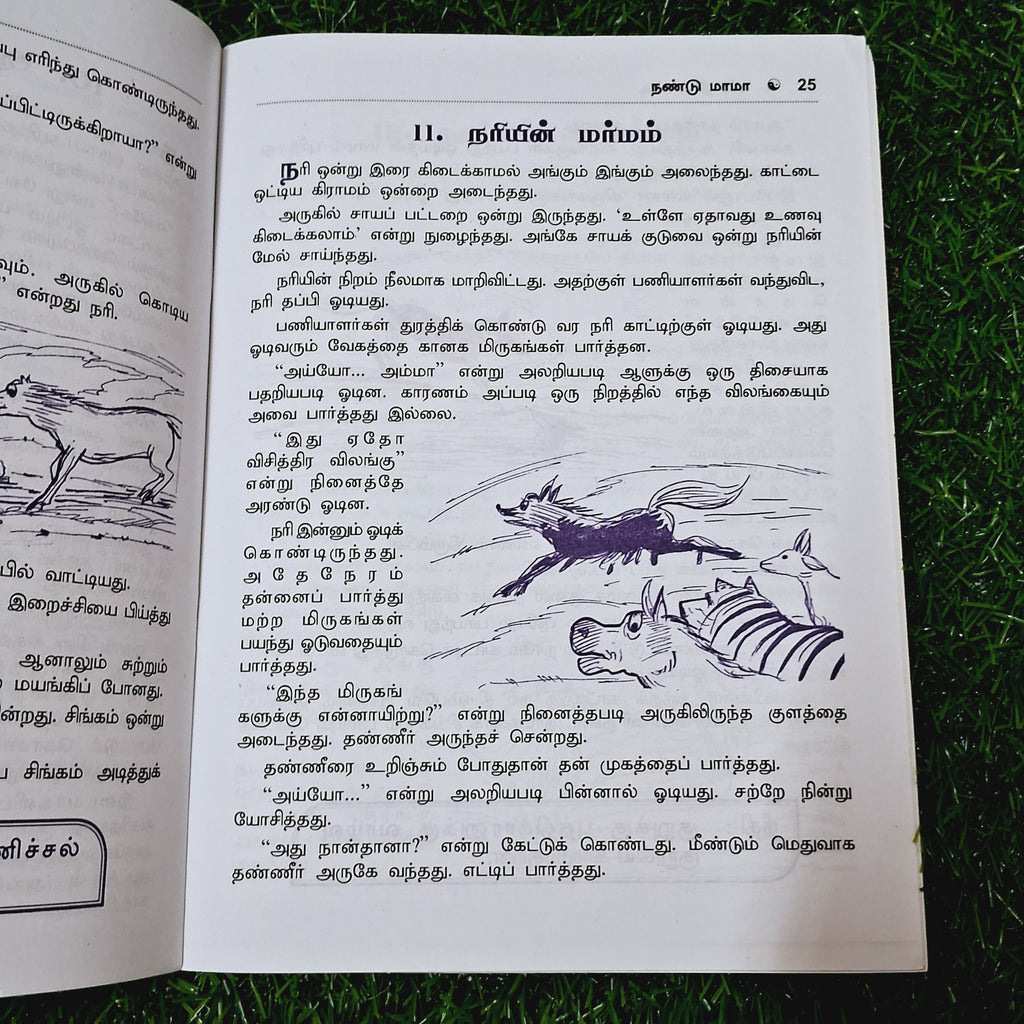 பு எரிந்து கொண்டிருந்தது.
ப்பிட்டிருக்கிறாயா?” என்று
வும். அருகில் கொடிய
” என்றது நரி.
யில் வாட்டியது.
இறைச்சியை பிய்த்து
ஆனாலும் சுற்றும்
மயங்கிப் போனது.
ன்றது. சிங்கம் ஒன்று
சிங்கம் அடித்துக்
னிச்சல்
நண்டு மாமா 25
11. நரியின் மர்மம்
நரி ஒன்று இரை கிடைக்காமல் அங்கும் இங்கும் அலைந்தது. காட்டை
ஒட்டிய கிராமம் ஒன்றை அடைந்தது.
அருகில் சாயப் பட்டறை ஒன்று இருந்தது. ‘உள்ளே ஏதாவது உணவு
கிடைக்கலாம்’ என்று நுழைந்தது. அங்கே சாயக் குடுவை ஒன்று நரியின்
மேல் சாய்ந்தது.
நரியின் நிறம் நீலமாக மாறிவிட்டது. அதற்குள் பணியாளர்கள் வந்துவிட,
நரி தப்பி ஓடியது.
பணியாளர்கள் துரத்திக் கொண்டு வர நரி காட்டிற்குள் ஓடியது. அது
ஓடிவரும் வேகத்தை கானக மிருகங்கள் பார்த்தன.
“அய்யோ... அம்மா” என்று அலறியபடி ஆளுக்கு ஒரு திசையாக
பதறியபடி ஓடின. காரணம் அப்படி ஒரு நிறத்தில் எந்த விலங்கையும்
அவை பார்த்தது இல்லை.
“இது ஏதோ
விசித்திர விலங்கு”
என்று நினைத்தே
அரண்டு ஓடின.
நரி இன்னும் ஓடிக்
கொண்டிருந்தது.
அதேநேரம்
தன்னைப் பார்த்து
மற்ற மிருகங்கள்
பயந்து ஓடுவதையும்
பார்த்தது.
“இந்த மிருகங்
களுக்கு என்னாயிற்று?” என்று நினைத்தபடி அருகிலிருந்த குளத்தை
அடைந்தது. தண்ணீர் அருந்தச் சென்றது.
தண்ணீரை உறிஞ்சும் போதுதான் தன் முகத்தைப் பார்த்தது.
“அய்யோ...” என்று அலறியபடி பின்னால் ஓடியது. சற்றே நின்று
யோசித்தது.
“அது நான்தானா?” என்று கேட்டுக் கொண்டது. மீண்டும் மெதுவாக
தண்ணீர் அருகே வந்தது. எட்டிப் பார்த்தது.